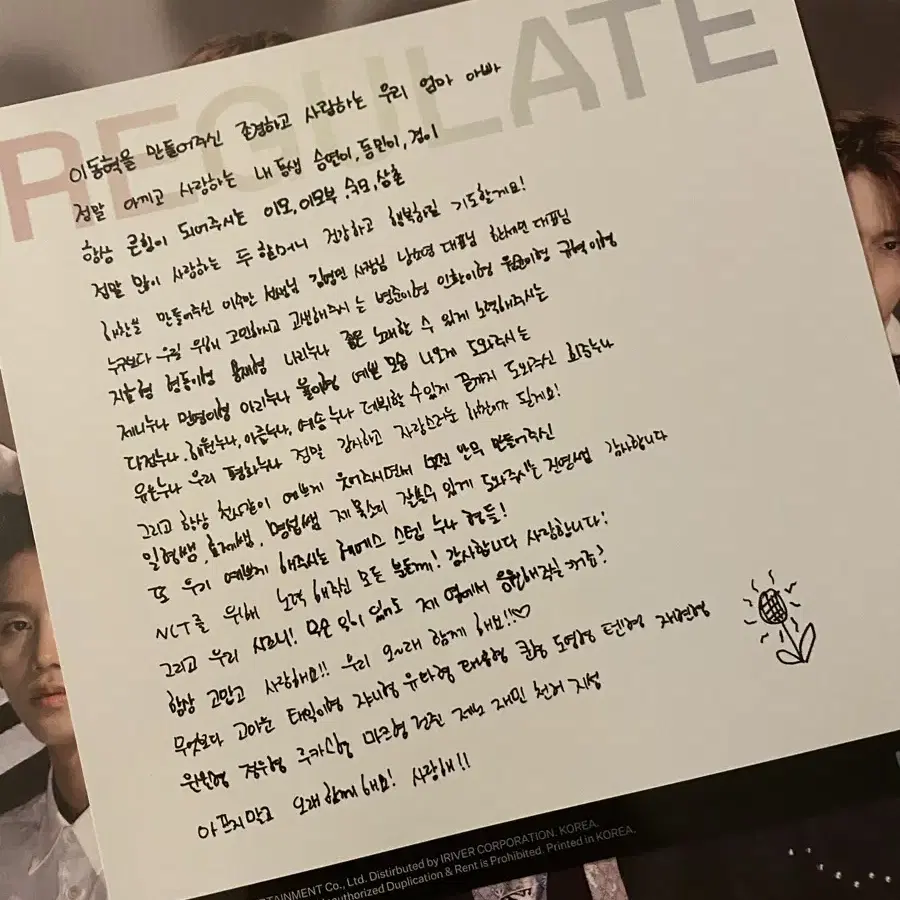 REGULATE
이동혁을 만들어주신 존경하고 사랑하는 우리 엄마 아빠
정말 아끼고 사랑하는 내 동생 승연이, 동민이, 경이
항상 큰힘이 되어주시는 이모, 이모부, 숙모, 삼촌
정말 많이 사랑하는 두 할머니 건강하고 행복하길 기도할게요!
해찬을 만들어주신 이수만 선생님 김영민 사장님 남소영 대표님 한세민 대표님
누구보다 우릴 위해 고민하시고 고생해주시는 병준이형 인환이형 윤순이형 규혁이형
지호형 형동이형 용재형 나리누나 좋은 노래할 수 있게 노력해주시는
제니누나 민영이형 아리누나 예쁜 모습 나오게 도와주시는
다정누나, 해원누나, 아름누나, 여송누나 데뷔할 수 있게 끝까지 도와주신 희주누나
유은누나 우리 평화누나 정말 감사하고 자랑스러운 해찬이가 될게요!
그리고 항상 천사같이 예쁘게 웃어주시면서 만들어주신
일형쌤, 효제쌤, 명섭쌤 제 목소리 잘쓸수 있게 도와주시는 진영쌤 감사합니다
또 우리 예쁘게 해주시는 헤메스 스텝 누나 형들!
NCT를 위해 노력 해주신 모든 분들께! 감사합니다 사랑합니다!
그리고 우리 시즈니! 무슨 일이 있어도 제 옆에서 응원해주실 거죠?
항상 고맙고 사랑해요!! 우리 오~래 함께 해요!!♡
무엇보다 고마운 태일이형 쟈니형 유타형 태용형 쿤형 도영형 텐형 재현형
윈윈형 정우형 루카스형 마크형 런쥔 제노 재민 천러 지성
아프지말고 오래 함께해요! 사랑해!!
TAINMENT Co., Ltd. Distributed by IRIVER CORPORATION. KOREA.
authorized Duplication & Rent is Prohibited. Printed in KOREA.